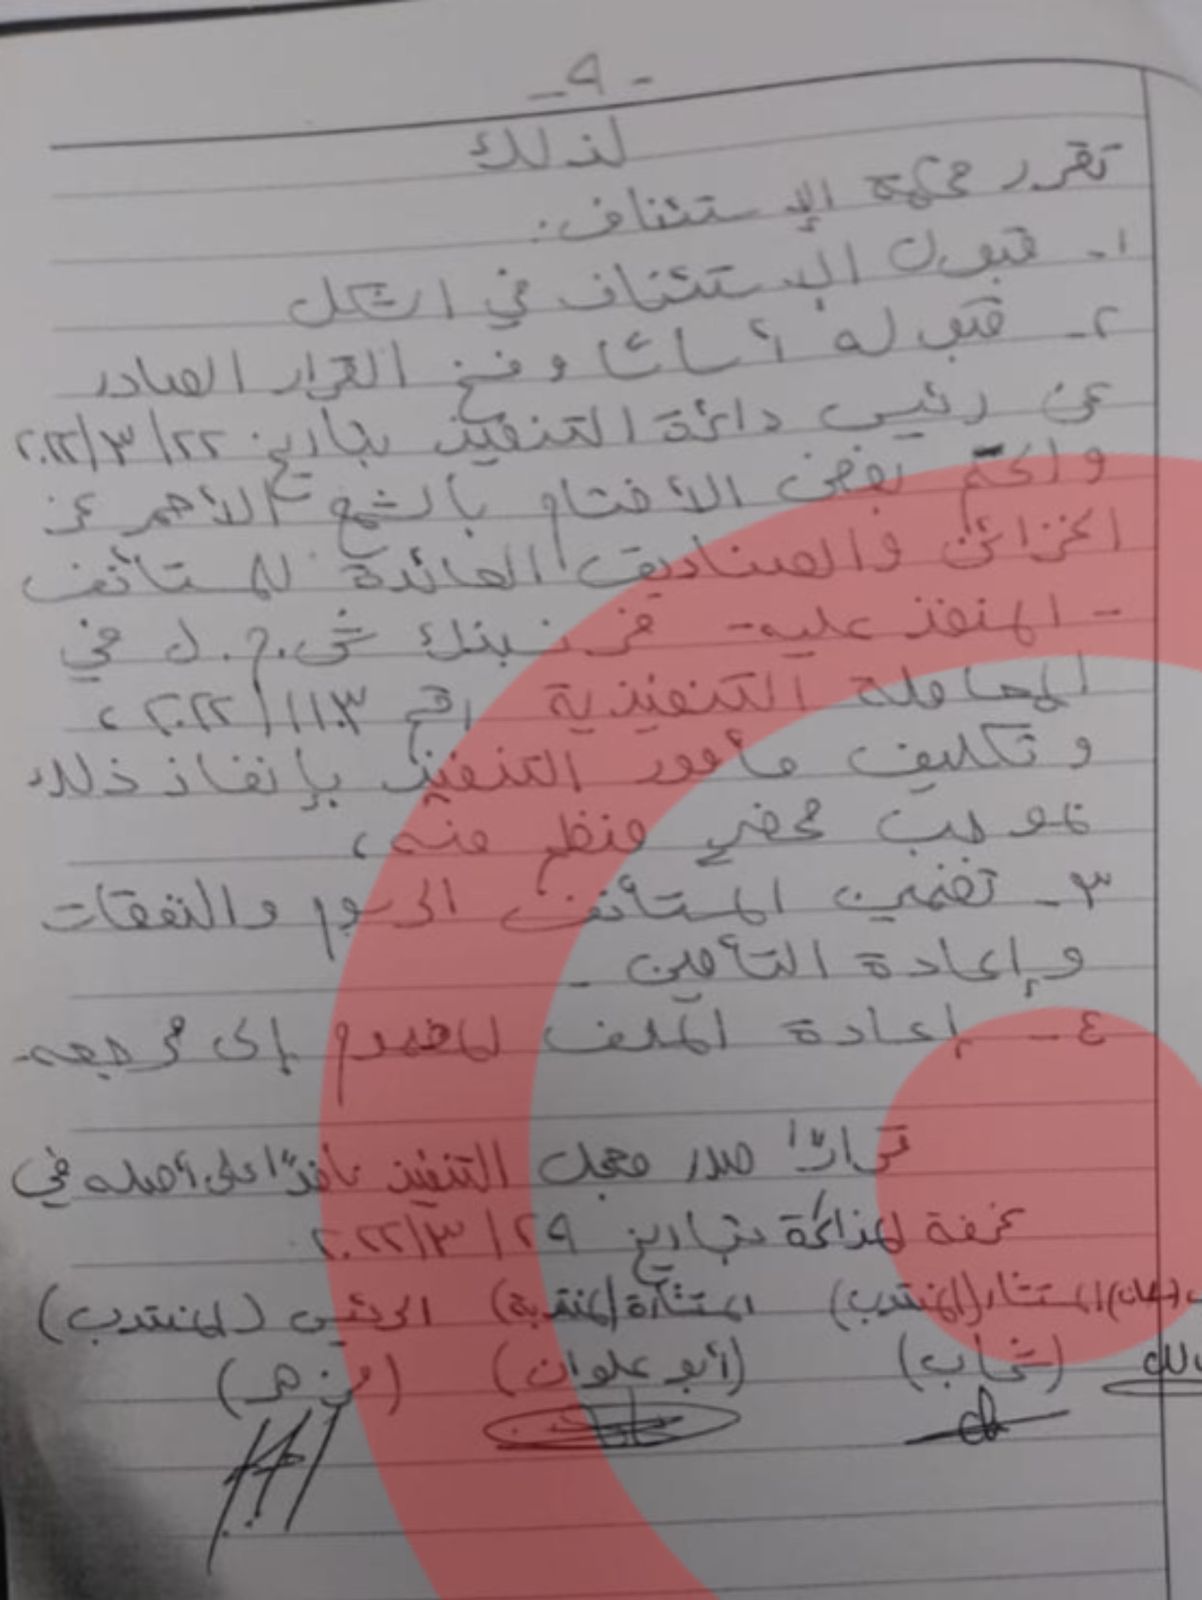 - ٩ -
لذلك
تقرر محكمة الإستئناف:
١- قبول الإستئناف في الشكل
٢- قبوله أساسًا وفسخ القرار الصادر
عن رئيس دائرة التنفيذ بتاريخ ٢٢/٣/٢٠٢٢
والحكم بفض الأختام بالشمع الأحمر عن
الخزائن والصناديق العائدة للمستأنف
- المنفذ عليه - فرنسبنك ش.م.ل في
المعاملة التنفيذية رقم ١١٠٣/٢٠٢٢،
وتكليف مأمور التنفيذ بإنفاذ ذلك
بموجب محضر منظم منه،
٣- تضمين المستأنف الرسوم والنفقات
وإعادة التأمين -
٤- إعادة الملف المضموم إلى مرجعه-
قرارًا صدر معجل التنفيذ نافذًا على أصله في
غرفة المذاكرة بتاريخ ٢٩/٣/٢٠٢٢
المستشار (المنتدب) المستشارة (المنتدبة) الرئيس (المنتدب)
(شهاب) (أبو علوان) (مزهر)